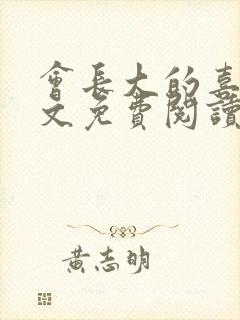 會長大的喜
文免費閱讀
黃志明